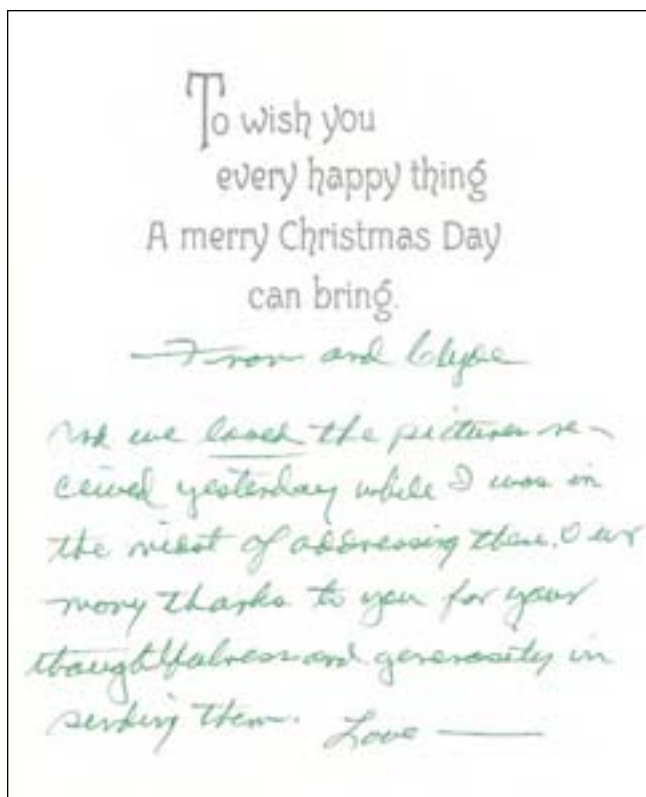 To wish you
every happy thing
A merry Christmas Day
can bring.
— Fran and Clyde
And we loved the pictures re-
ceived yesterday while I was in
the midst of addressing these. Our
many thanks to you for your
thoughtfulness and generosity in
sending them. Love —